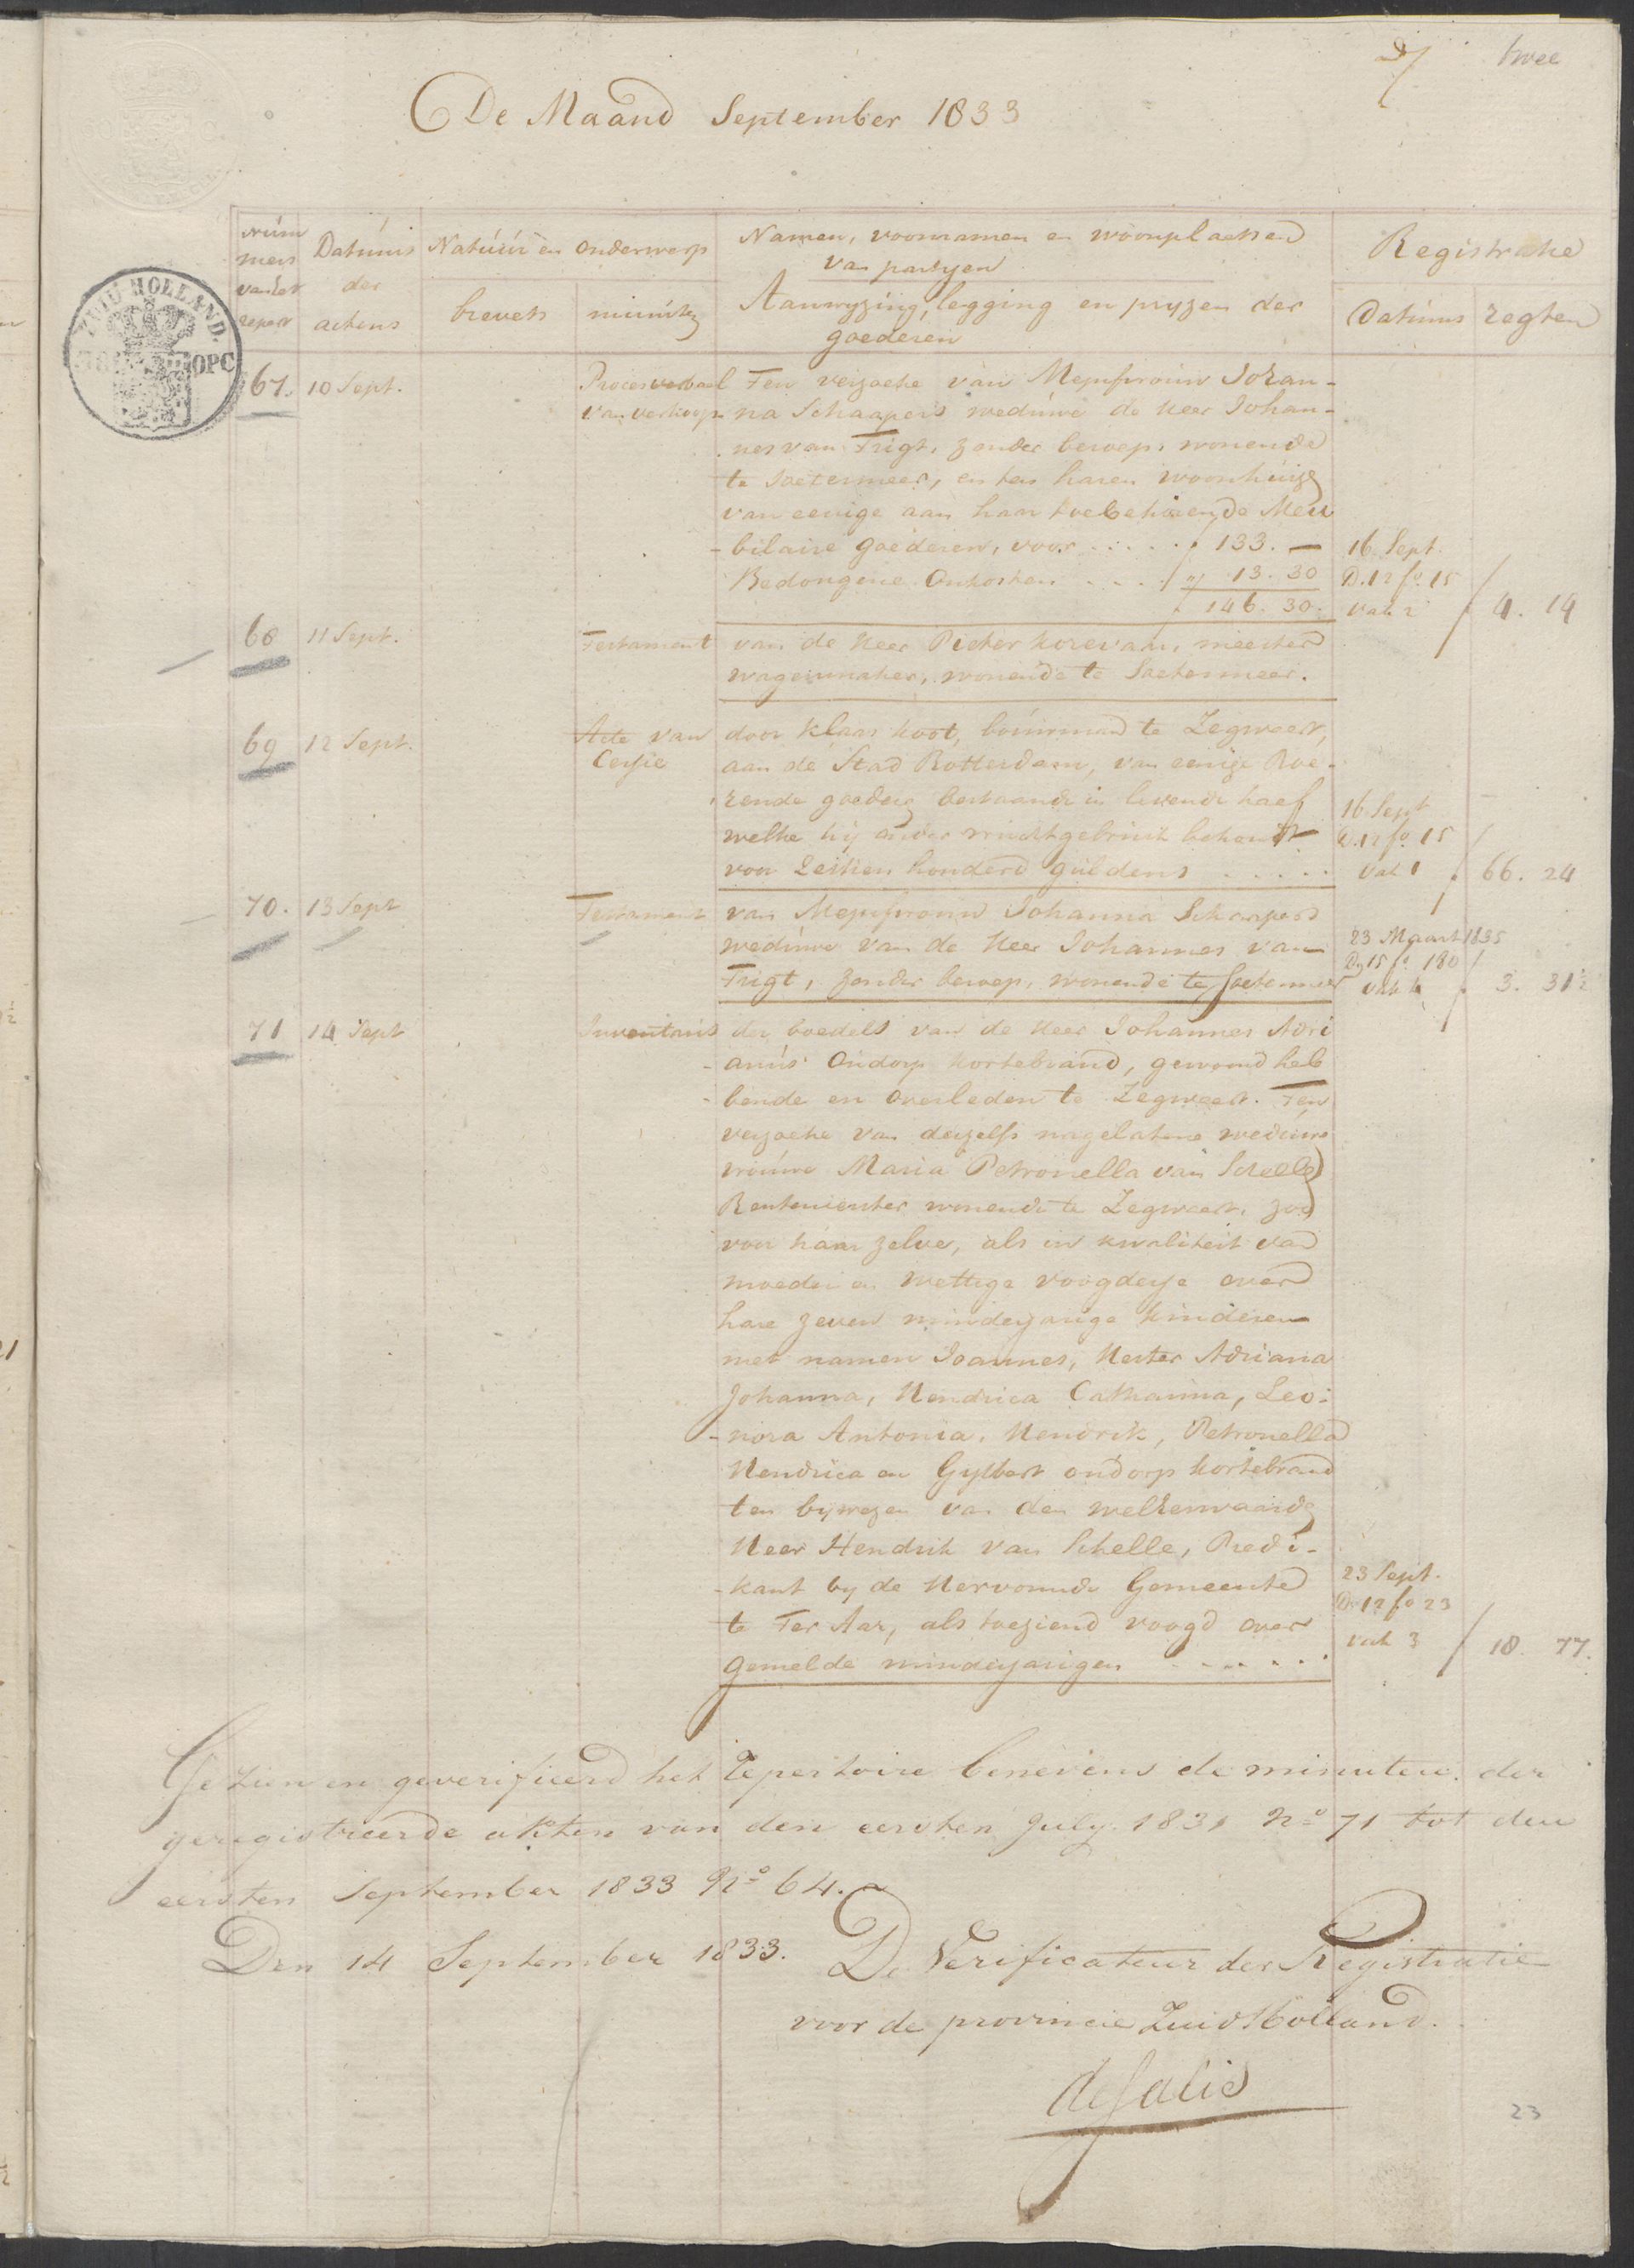 twee
De Maand September 1833
Num
mers
van het
repert
Datums
der
actens
Natuur en onderwerp
brevets
minuten
Namen, voornamen en woonplaatsen
van partyen
Aanwyzing, legging en pryzen der
goederen
Registratie
Datums
regten
ZUID HOLLAND.
OPC
67. 10 Sept.
Procesverbaal
van verkoop
Ten verzoeke van Mejufvrouw Johan-
na Schaapers weduwe de Heer Johan-
nes van Trigt, zonder beroep, wonende
te Soetermeer, en ten haren woonhuize
van eenige aan haar toebehoorende Meu
-bilaire goederen, voor ..... f 133. —
Bedongene Onkosten .... " 13. 30
f 146. 30.
16 Sept.
D. 12 fo. 15
vak 2
f 4. 14
68 11 Sept.
Testament
van de Heer Pieter Korevaar, meester
wagenmaker, wonende te Soetermeer.
69 12 Sept.
Acte van
Cessie
door Klaas Koot, bouwman te Zegwaert,
aan de Stad Rotterdam, van eenige Roe-
rende goederen bestaande in levende haef
welke hij onder vruchtgebruik behoudt
voor zestien honderd guldens .....
16 Sept
D. 12 fo. 15
vak 1
f 66. 24
70. 13 Sept
Testament
van Mejufvrouw Johanna Schaapers
weduwe van de Heer Johannes van
Trigt, zonder beroep, wonende te Soetermeer
23 Maart 1835
D. 15 fo. 180
vak 4
f 3. 31½
71 14 Sept
Inventaris
der boedels van de Heer Johannes Adri
-anus Ondorp Kortebrand, gewoond heb
-bende en overleden te Zegwaert. Ten
verzoeke van deszelfs nagelatene weduwe
vrouwe Maria Petronella van Schelle
Rentenierster wonende te Zegwaert, zoo
voor haar zelve, als in kwaliteit van
moeder en wettige voogdesse over
hare zeven minderjarige kinderen
met namen Joannes, Hester Adriana
Johanna, Hendrica Catharina, Leo-
-nora Antonia, Hendrik, Petronella
Hendrica en Gysbert ondorp Kortebrand
ten bijwezen van den welEerwaarde
Heer Hendrik van Schelle, Predi-
-kant by de Hervormde Gemeente
te Ter Aar, als toeziend voogd over
gemelde minderjarigen ......
23 Sept.
D. 12 fo 23
vak 3
f 18. 77.
Gezien en geverifieerd het repertoire benevens de minuten der
geregistreerde akten van den eersten July 1831 No 71 tot den
eersten September 1833 No 64.
Den 14 September 1833.
De Verificateur der Registratie
voor de provincie Zuid Holland.
deSalis
23